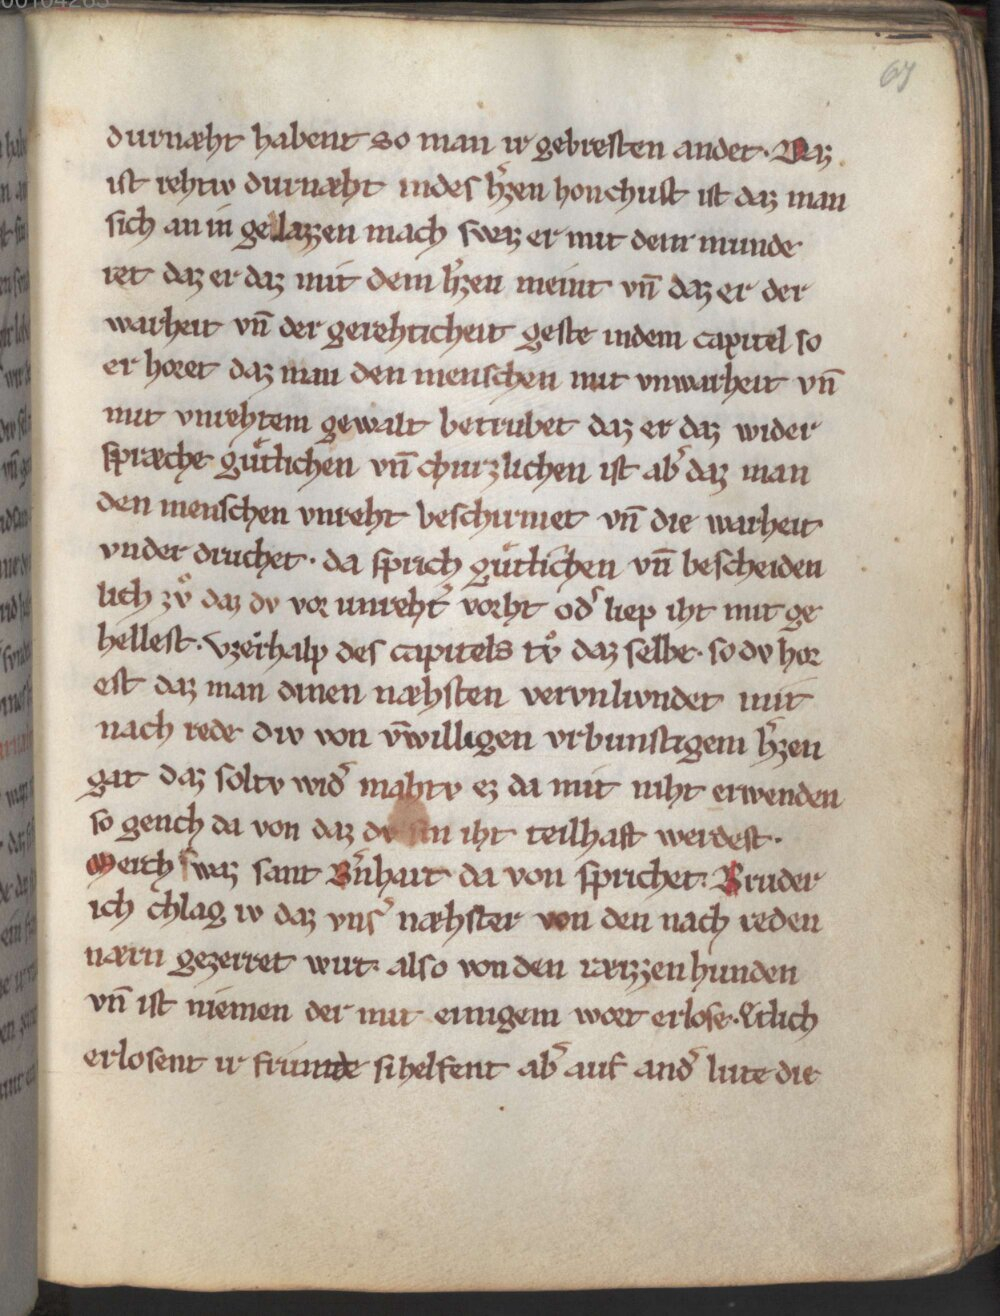 67
durnæht habent so man ir gebresten andet. Daz
ist rehtiv durnæht indes hˀzen honchust ist daz man
sich an in gelazzen mach swez er mit dem munde
iet daz er daz mit dem hˀzen meint vn̄ daz er der
warheit vn̄ der gerehticheit geste indem capitel so
er horet daz man den menschen mit vnwarheit vn̄
mit vnrehtem gewalt betrubet daz er daz wider
spræche gůtlichen vn̄ churzlichen ist abˀ daz man
den menschen vnreht beschirmet vn̄ die warheit
vnder druchet. da sprich gůtlichen vn̄ bescheiden
lich zv̊ daz dv vor unrehtˀ vorht odˀ liep iht mit ge
hellest. Vzerhalp des capitels tv̊ daz selbe. so dv hor
est daz man dinen næhsten vervnlivndet mit
nach rede div von v̄willigen vrbunstigem hˀzen
gat daz soltv widˀ mahtv ez da mit niht erwenden
so gench da von daz dv sin iht teilhaft werdest.
Merch swaz sant Bˀnhart da von sprichet. Bruder
ich chlag iv daz vnsˀ næhster von den nach reden
nærn gezerret wirt. also von den ræzzen hunden
vn̄ ist niemen der mit einigem wort erlose. Etlich
erlosent ir friunde si helfent abˀ auf andˀ liute die